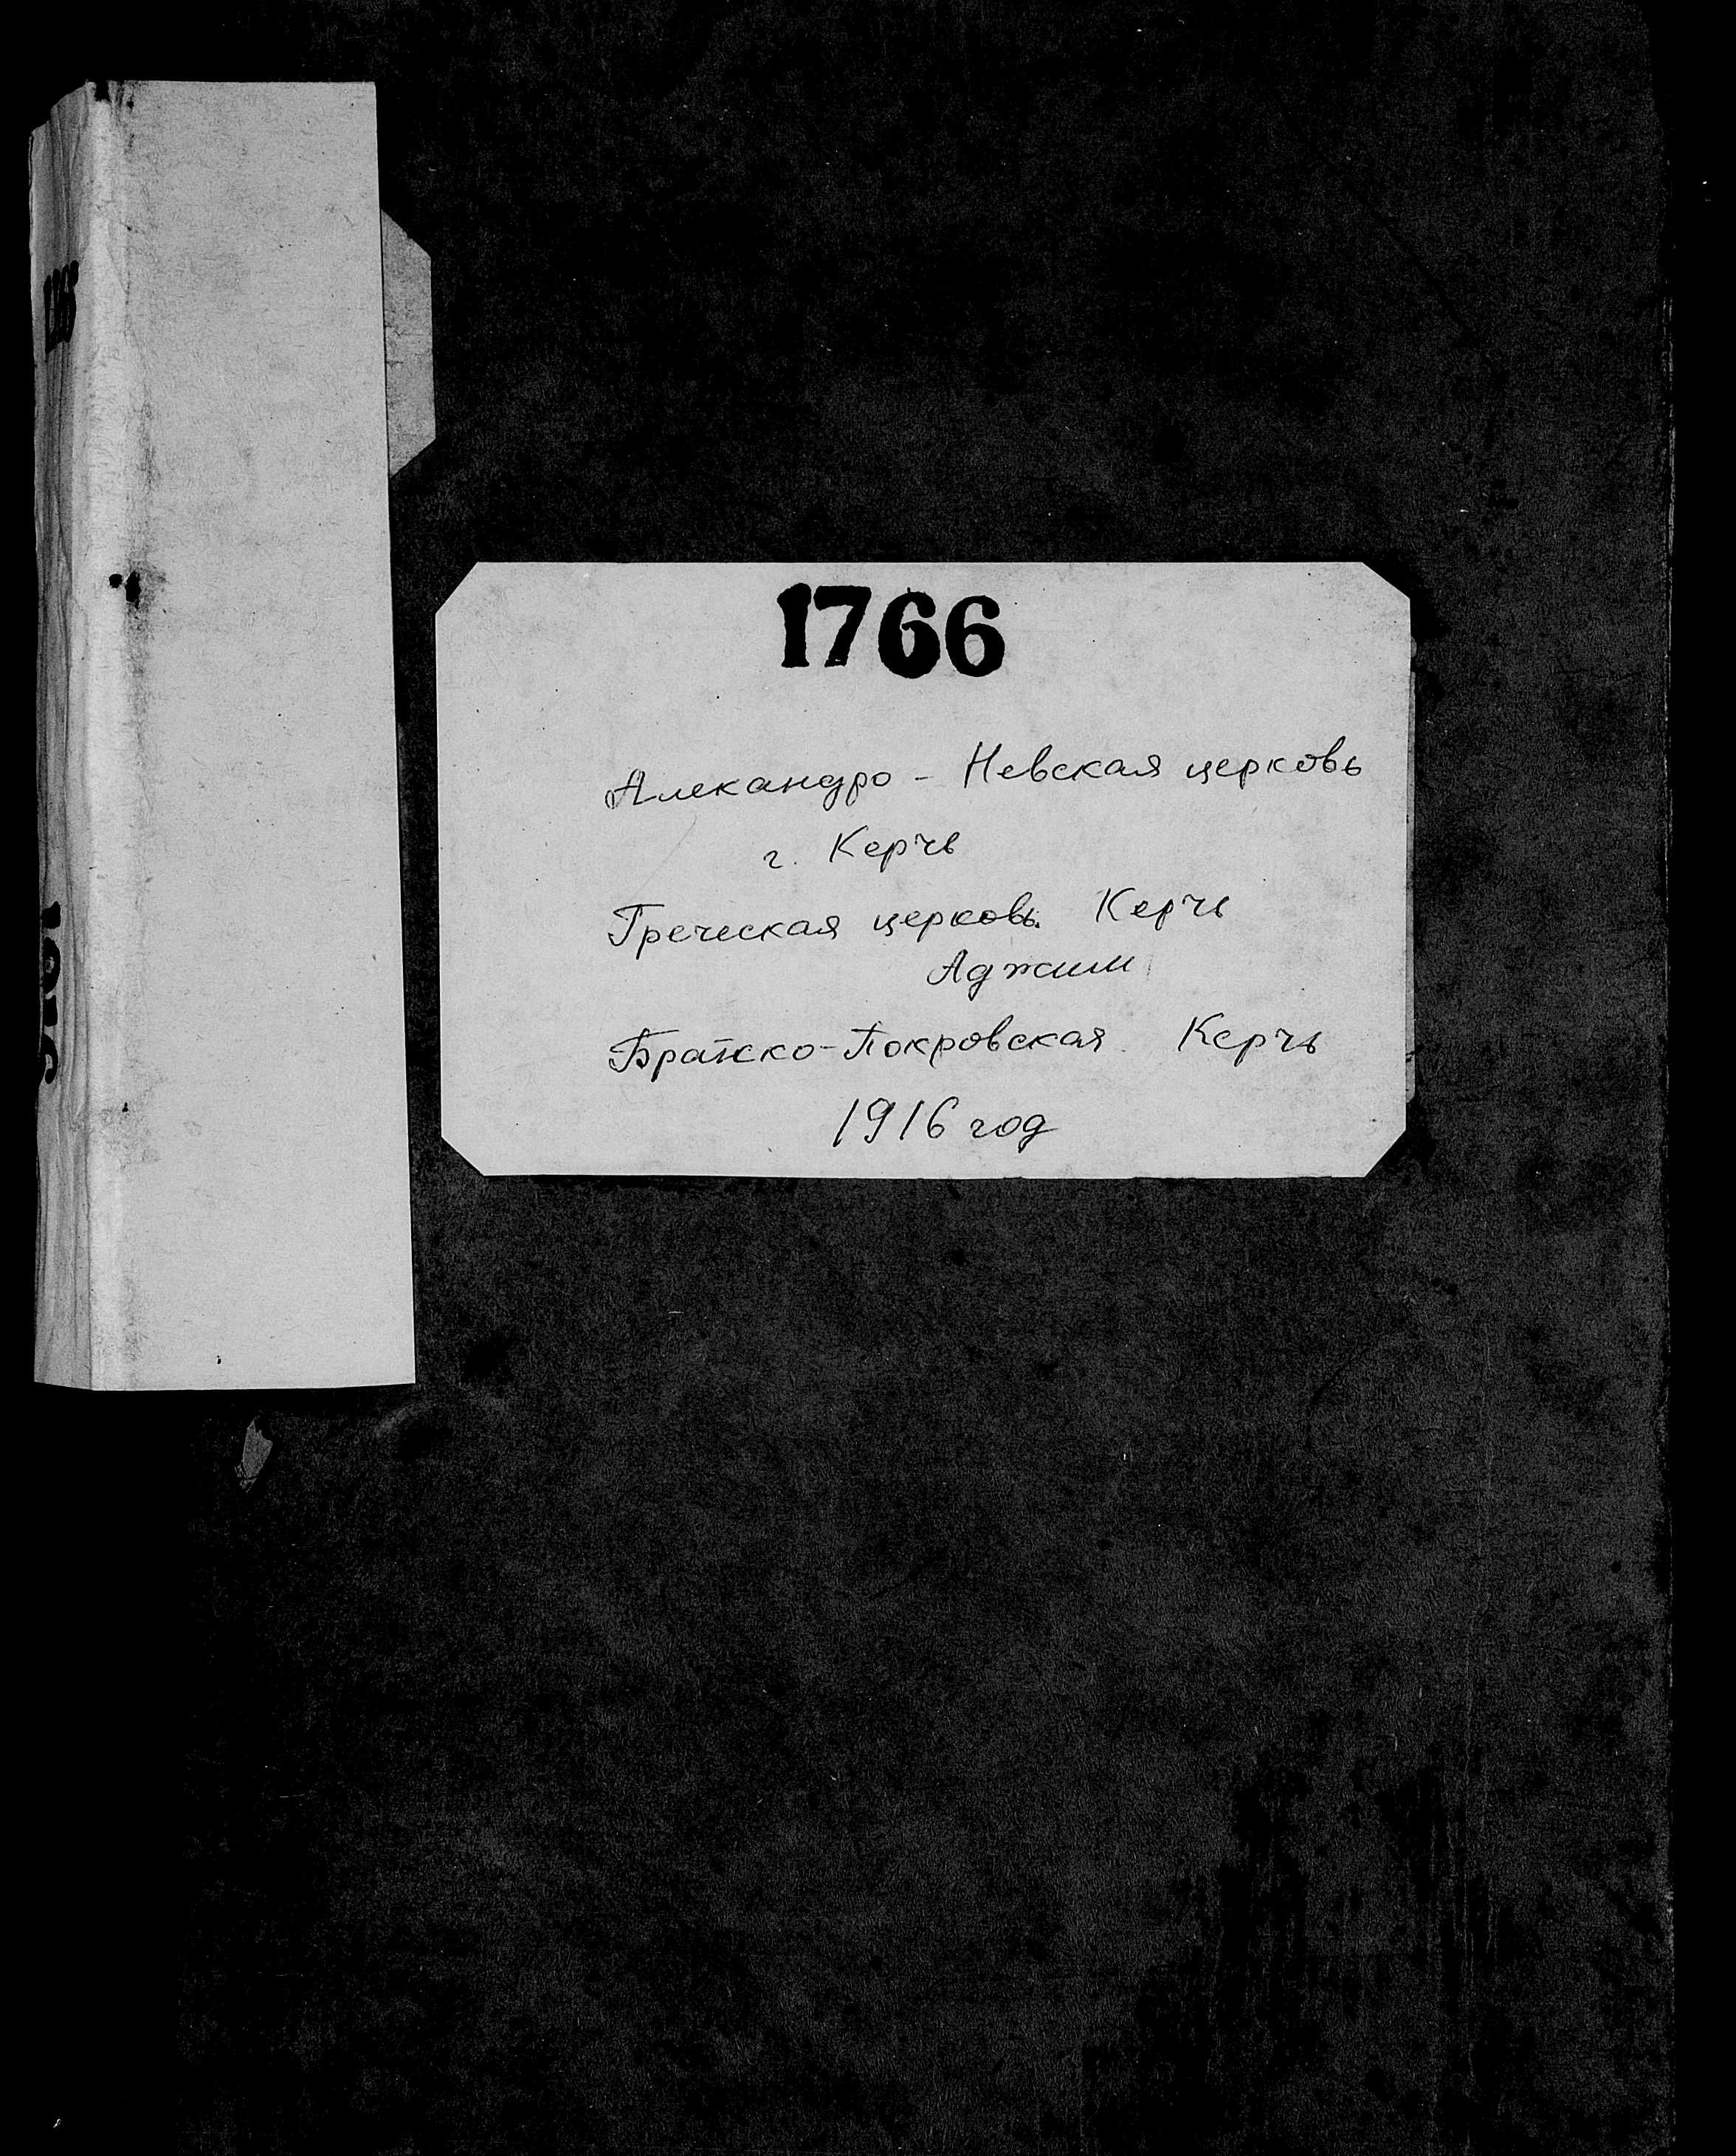 1766
Алекандро - Невская церковь
г. Керчь
Греческая церковь. Керчь
Аджим
Братско-Покровская Керчь
1916 год